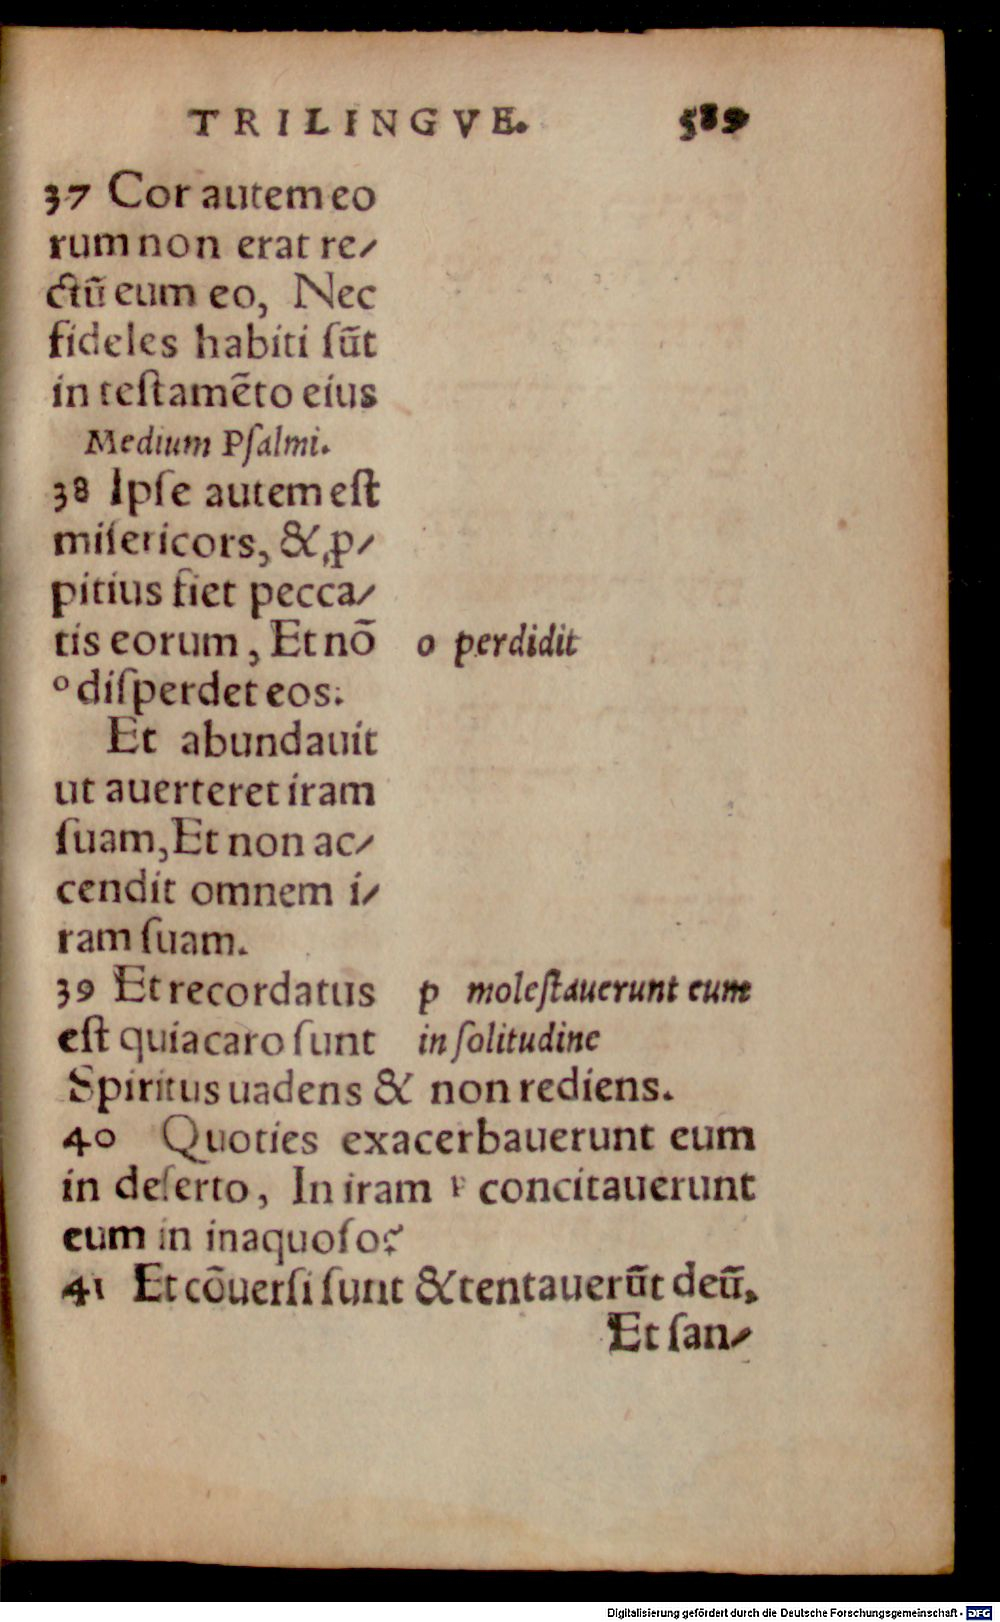 TRILINGVE. 589
37 Cor autem eo
rum non erat re⸗
ctū eum eo, Nec
fideles habiti ſūt
in teſtamēto eius
Medium Pſalmi.
38 Ipſe autem eſt
miſericors, & ꝓ⸗
pitius fiet pecca⸗
tis eorum, Et nō
o perdidit
º diſperdet eos.
Et abundauit
ut auerteret iram
ſuam, Et non ac⸗
cendit omnem i⸗
ram ſuam.
39 Et recordatus
est quia caro ſunt
p moleſtauerunt eum
in ſolitudine
Spiritus uadens & non rediens.
40 Quoties exacerbauerunt eum
in deſerto, In iram ᵖ concitauerunt
eum in inaquoſo?
41 Et cōuerſi ſunt & tentauerūt deū,
Et ſan⸗
Digitalisierung gefördert durch die Deutsche Forschungsgemeinschaft - DFG